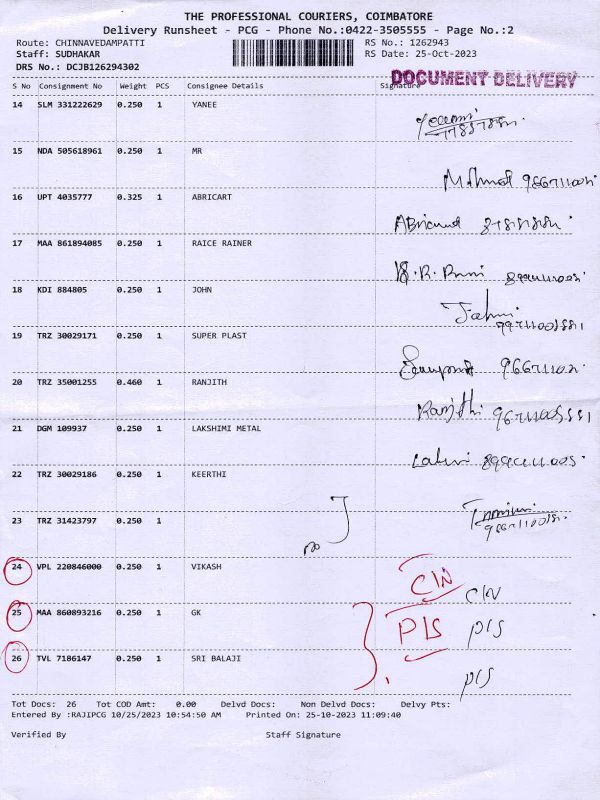 THE PROFESSIONAL COURIERS, COIMBATORE
Delivery Runsheet - PCG - Phone No.:0422-3505555 - Page No.:2
Route: CHINNAVEDAMPATTI RS No.: 1262943
Staff: SUDHAKAR RS Date: 25-Oct-2023
DRS No.: DCJB126294302
DOCUMENT DELIVERY
S No Consignment No Weight PCS Consignee Details Signature
14 SLM 331222629 0.250 1 YANEE
15 NDA 505618961 0.250 1 MR
16 UPT 4035777 0.325 1 ABRICART
17 MAA 861894085 0.250 1 RAICE RAINER
18 KDI 884805 0.250 1 JOHN
19 TRZ 30029171 0.250 1 SUPER PLAST
20 TRZ 35001255 0.460 1 RANJITH
21 DGM 109937 0.250 1 LAKSHIMI METAL
22 TRZ 30029186 0.250 1 KEERTHI
23 TRZ 31423797 0.250 1
24 VPL 220846000 0.250 1 VIKASH CIN CIN
25 MAA 860893216 0.250 1 GK PIS PIS
26 TVL 7186147 0.250 1 SRI BALAJI PIS
Tot Docs: 26 Tot COD Amt: 0.00 Delvd Docs: Non Delvd Docs: Delvy Pts:
Entered By :RAJIPCG 10/25/2023 10:54:50 AM Printed On: 25-10-2023 11:09:40
Verified By Staff Signature